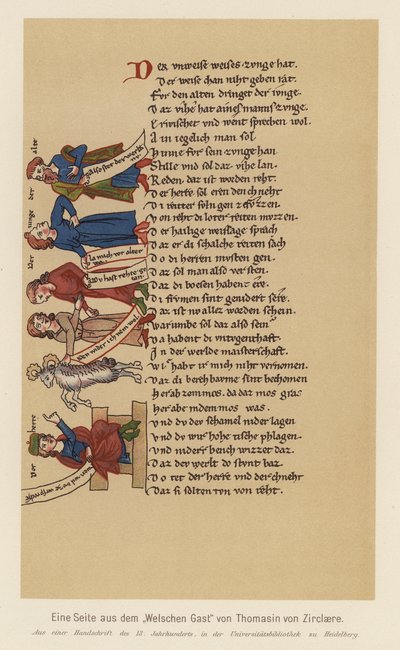 Der vnweise weises zvnge hat.
Der weise chan niht geben rat.
For den alten dringet der ivnge.
Daz vihe hat aines mannes zvnge.
vnd went sprechen wol.
in iegelich man sol
fvr sein zvnge han
Stille vnd sol daz vihe lan.
Reden daz ist worden reht.
Der herre sol eren den chneht
Di reiter
Von reht di reiten mvzzen.
Der hailige weissage sprach
Daz er di schalche reiten sach
Do di herren mvsten gen.
Daz sol man also versten.
Daz di boesen habent ere.
Di frvmen sint genidert sere.
Daz ist nv allez worden schein.
Warvmbe sol daz also sein
Da habent di vntvgenthaft
In der werlde maisterschaft.
Wi habt ir mich niht vernomen.
Daz di sint bechomen
Her ab zem mos. da daz mos gras
Her abe was.
Vnd do der schamel nider lagen
Vnd do wir hohe tische phlagen.
Vnd nidere bench wizzet daz.
Daz der werlt do stvnt baz.
Do tet der herre vnd der chneht
Daz si solten tvn von reht.
der alte
Der ivnge
Der herre
la mich vor alter
dv hast rehte
Den nider ich
Eine Seite aus dem „Welschen Gast“ von Thomasin von Zirclære.
Aus einer Handschrift des 13. Jahrhunderts, in der Universitätsbibliothek zu Heidelberg.